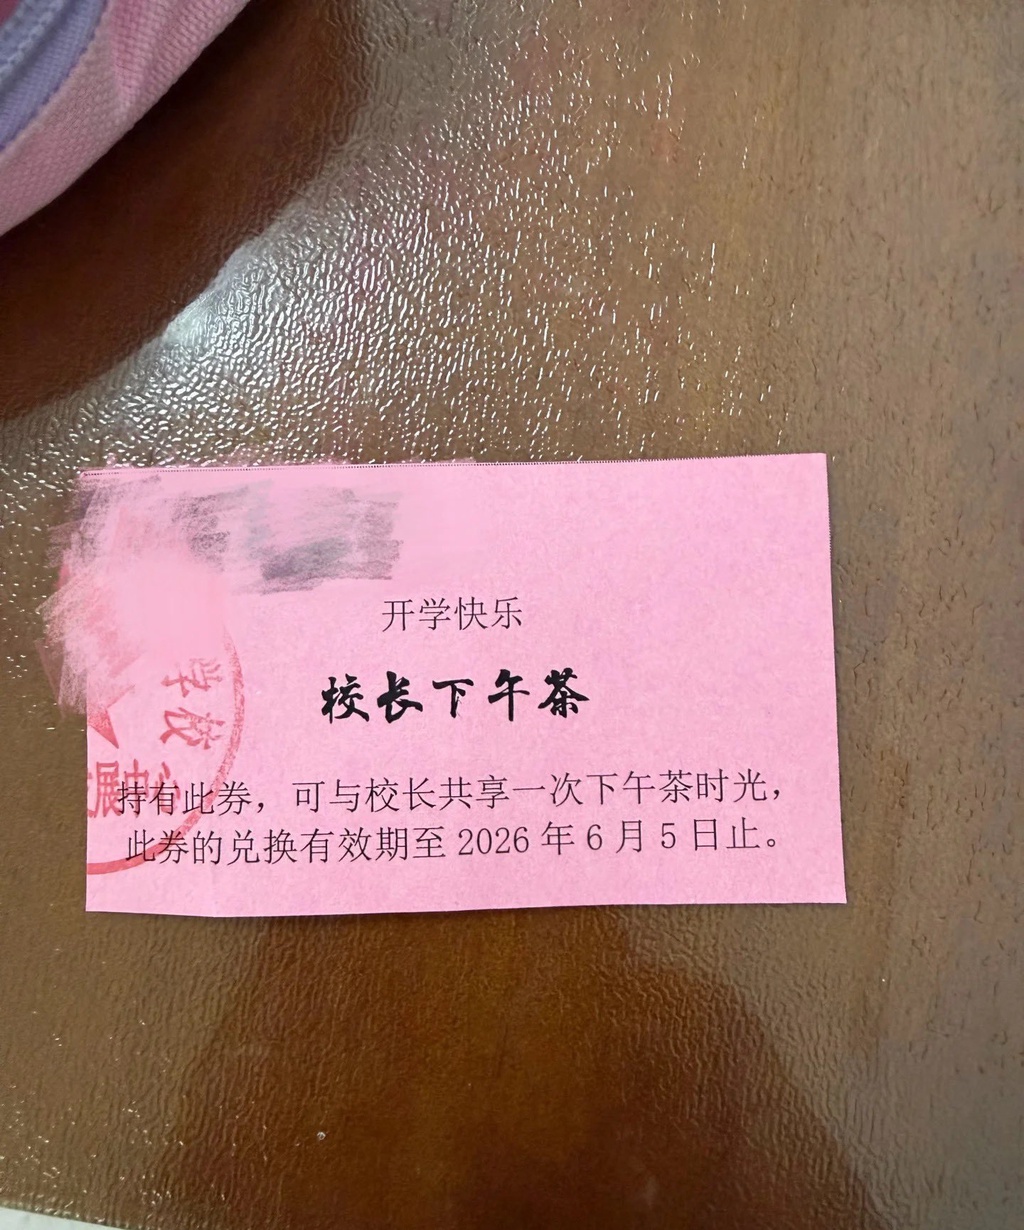 开学快乐
校长下午茶
持有此券，可与校长共享一次下午茶时光，
此券的兑换有效期至 2026 年 6 月 5 日止。
学校
展中心